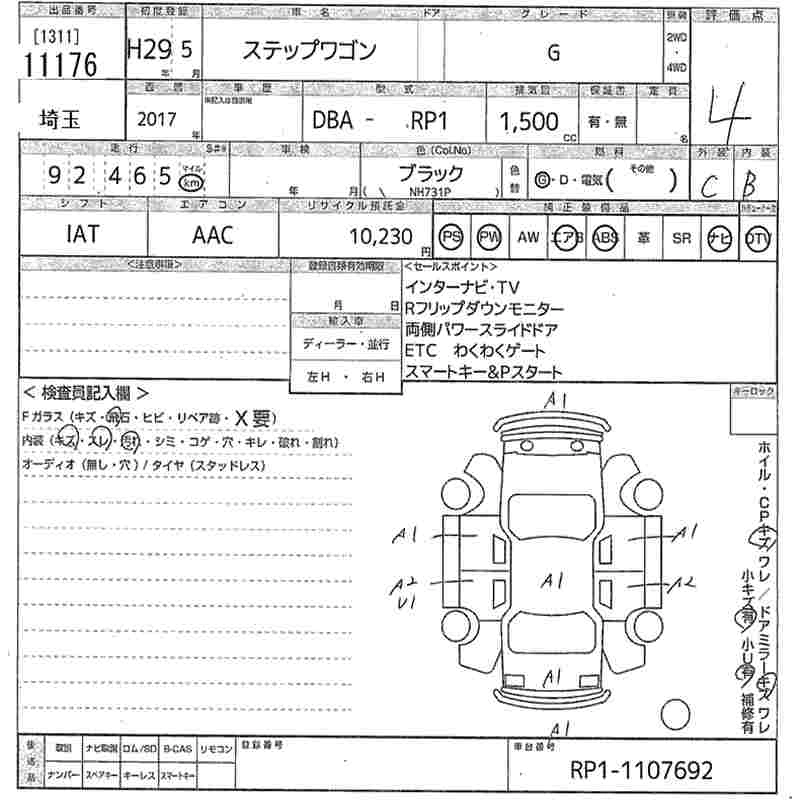 出品番号 初度登録 車名 ドア グレード 評価点
[1311]
11176 H29 5 ステップワゴン G 2WD・4WD
年 月
西暦 車歴 型式 排気量 保証書 定員
埼玉 2017 年 DBA - RP1 1,500 CC 有・無 名 4
走行 車検 色(Col.No) 燃料 外装 内装
92 465 マイル km 年 月 ブラック 色替 G・D・電気( その他 ) C B
( NH731P )
シフト エアコン リサイクル預託金 純正装備品
IAT AAC 10,230 円 PS PW AW エアB ABS 革 SR ナビ DTV
<注意事項> 登録書類有効期限 <セールスポイント>
月 日 インターナビ・TV
Rフリップダウンモニター
輸入車 両側パワースライドドア
ディーラー・並行 ETC わくわくゲート
左H・右H スマートキー&Pスタート
<検査員記入欄> キーロック
Fガラス(キズ・飛石・ヒビ・リペア跡・X要)
内装(キズ・スレ・汚れ・シミ・コゲ・穴・キレ・破れ・割れ)
オーディオ(無し・穴)/タイヤ(スタッドレス)
A1
A1 A1
A2 A1 A2
U1
A1
A1
ホイル・CPキズワレ/ドアミラーキズワレ
小キズ有 小U有 補修有
後送品 取説 ナビ取説 ロム/SD B-CAS リモコン 登録番号 車台番号
ナンバー スペアキー キーレス スマートキー RP1-1107692